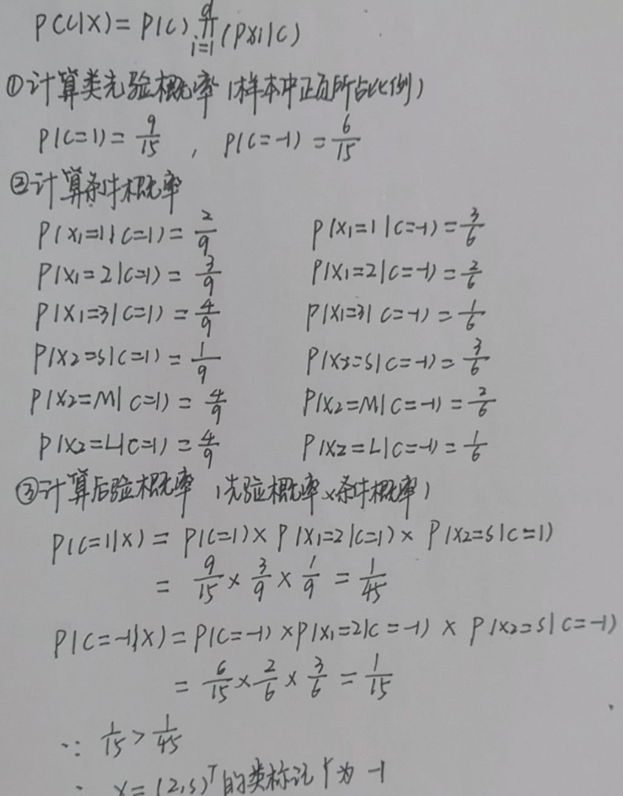 P(C|X) = P(C) ∏_{i=1}^{d} (Pxi|C)
①计算类先验概率(样本中正负所占比例)
P(C=1) = 9/15 , P(C=-1) = 6/15
②计算条件概率
P(X1=1|C=1) = 2/9 P(X1=1|C=-1) = 3/6
P(X1=2|C=1) = 3/9 P(X1=2|C=-1) = 2/6
P(X1=3|C=1) = 4/9 P(X1=3|C=-1) = 1/6
P(X2=S|C=1) = 1/9 P(X2=S|C=-1) = 3/6
P(X2=M|C=1) = 4/9 P(X2=M|C=-1) = 2/6
P(X2=L|C=1) = 4/9 P(X2=L|C=-1) = 1/6
③计算后验概率 (先验概率×条件概率)
P(C=1|X) = P(C=1) × P(X1=2|C=1) × P(X2=S|C=1)
= 9/15 × 3/9 × 1/9 = 1/45
P(C=-1|X) = P(C=-1) × P(X1=2|C=-1) × P(X2=S|C=-1)
= 6/15 × 2/6 × 3/6 = 1/15
∵ 1/15 > 1/45
∴ X=(2,S)^T的类标记Y为-1